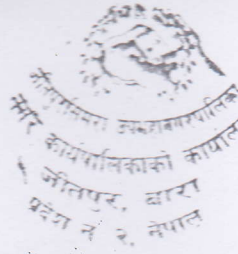 जीतपुरसिमरा उपमहानगरपालिका
नगर कार्यपालिकाको कार्यालय
जीतपुर, बारा
प्रदेश नं २, नेपाल